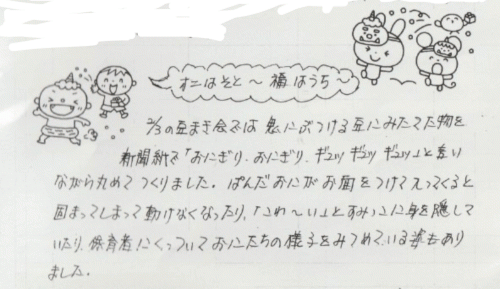 オニはそと～福はうち～
2/3の豆まき会では鬼にぶつける豆にみたてた物を
新聞紙で「おにぎり、おにぎり、ギュッギュッギュッ」と言い
ながら丸めてつくりました。ぱんだおにがお面をつけて入ってくると
固まってしまって動けなくなったり、「こわ～い」とすみっこに身を隠して
いたり、保育者にくっついておにたちの様子をみつめている姿もあり
ました。